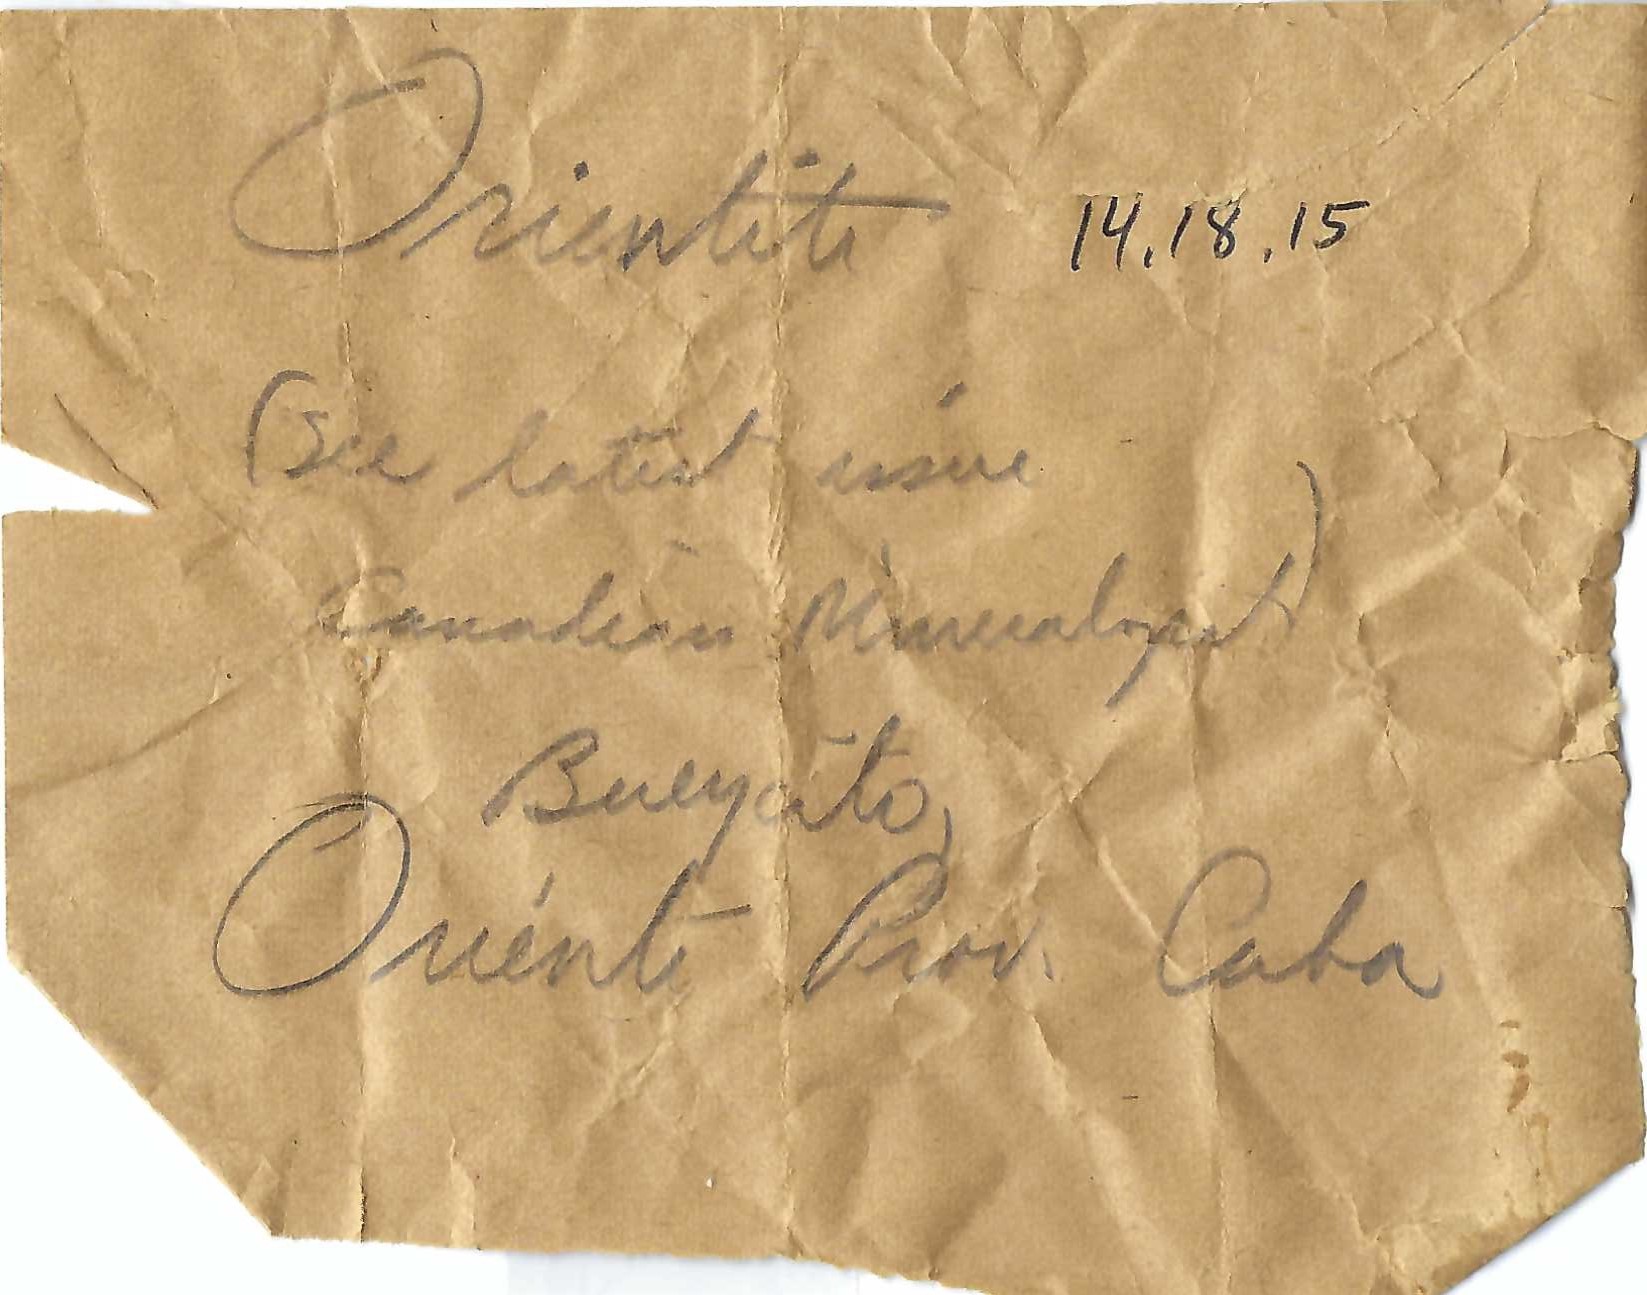 Orientite 14.18.15
(See latest issue
Canadian Mineralogist)
Bueycito,
Oriente Prov. Cuba